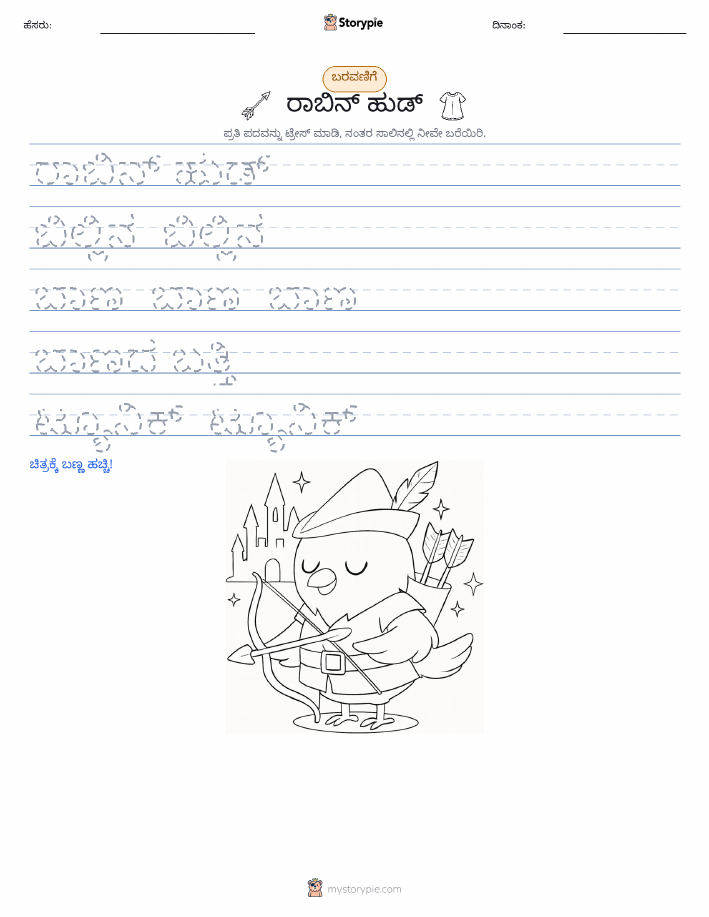 ಹೆಸರು:
Storypie
ದಿನಾಂಕ:
ಬರವಣಿಗೆ
ರಾಬಿನ್ ಹುಡ್
ಪ್ರತಿ ಪದವನ್ನು ಟ್ರೇಸ್ ಮಾಡಿ, ನಂತರ ಸಾಲಿನಲ್ಲಿ ನೀವೇ ಬರೆಯಿರಿ.
ರಾಬಿನ್ ಹುಡ್
ಬಿಲ್ಲಿನ ಬಿಲ್ಲಿನ
ಬಾಣ ಬಾಣ ಬಾಣ
ಬಾಣದ ಬತ್ತಿ
ಟ್ಯೂನಿಕ್ ಟ್ಯೂನಿಕ್
ಚಿತ್ರಕ್ಕೆ ಬಣ್ಣ ಹಚ್ಚಿ!
mystorypie.com